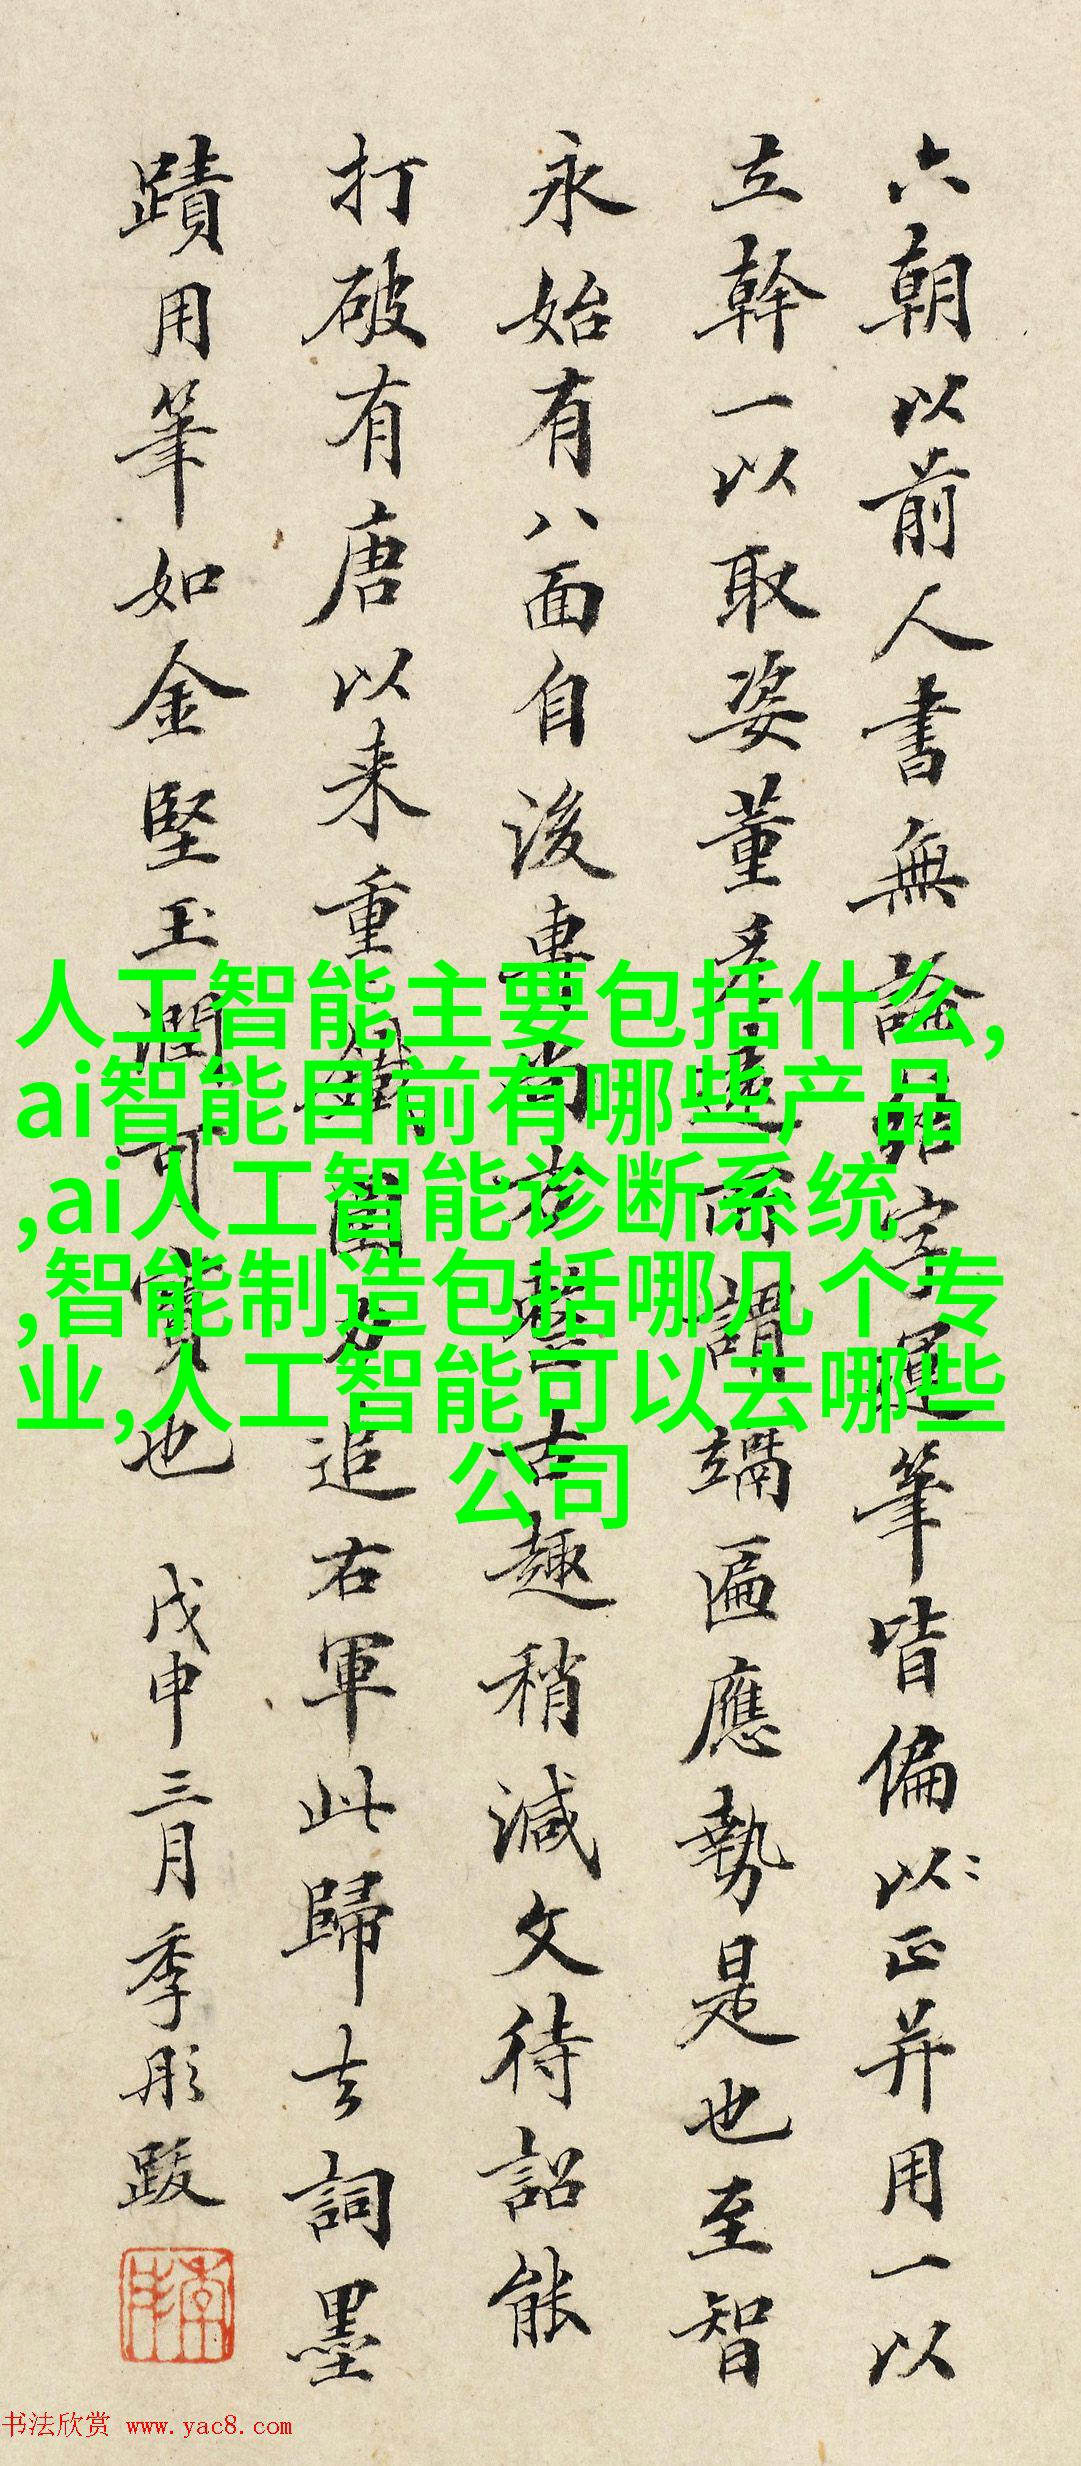 六朝以前人書無論結字運筆皆偏以〻正并用一以
立幹一以取姿董彥遠所謂匾應勢是也至智
永始有八面自後專尚整古趣稍減文待詔能
打破有唐以来重鐵圍力追右軍此歸去詞墨
蹟用筆如金堅玉潤可寶也 戊申三月季彤跋
人工智能主要包括什么,
ai智能目前有哪些产品
,ai人工智能诊断系统
,智能制造包括哪几个专
业,人工智能可以去哪些
公司
书法欣赏 www.yac8.com